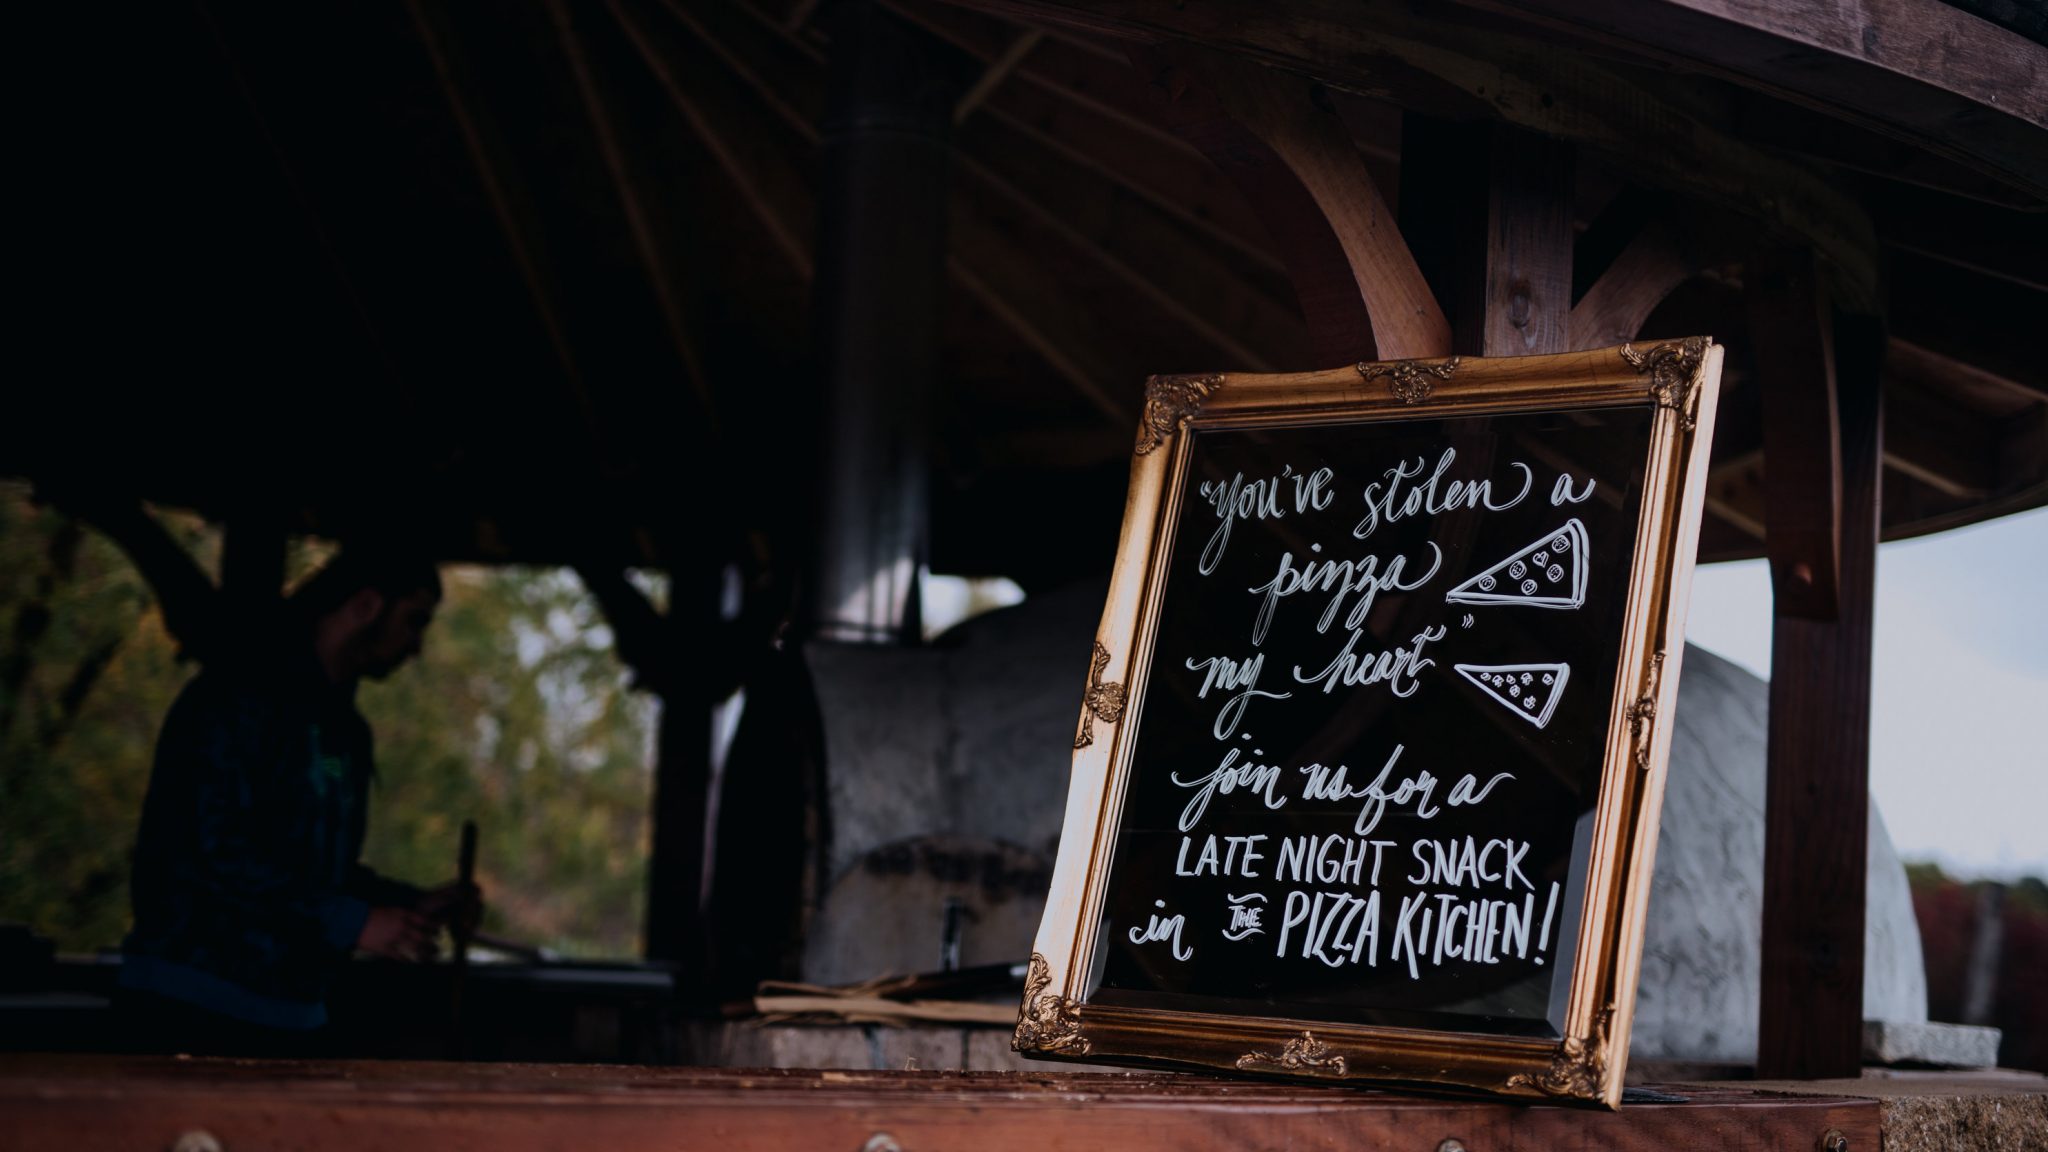 "you've stolen a
pizza
my heart
join us for a
LATE NIGHT SNACK
in THE PIZZA KITCHEN!